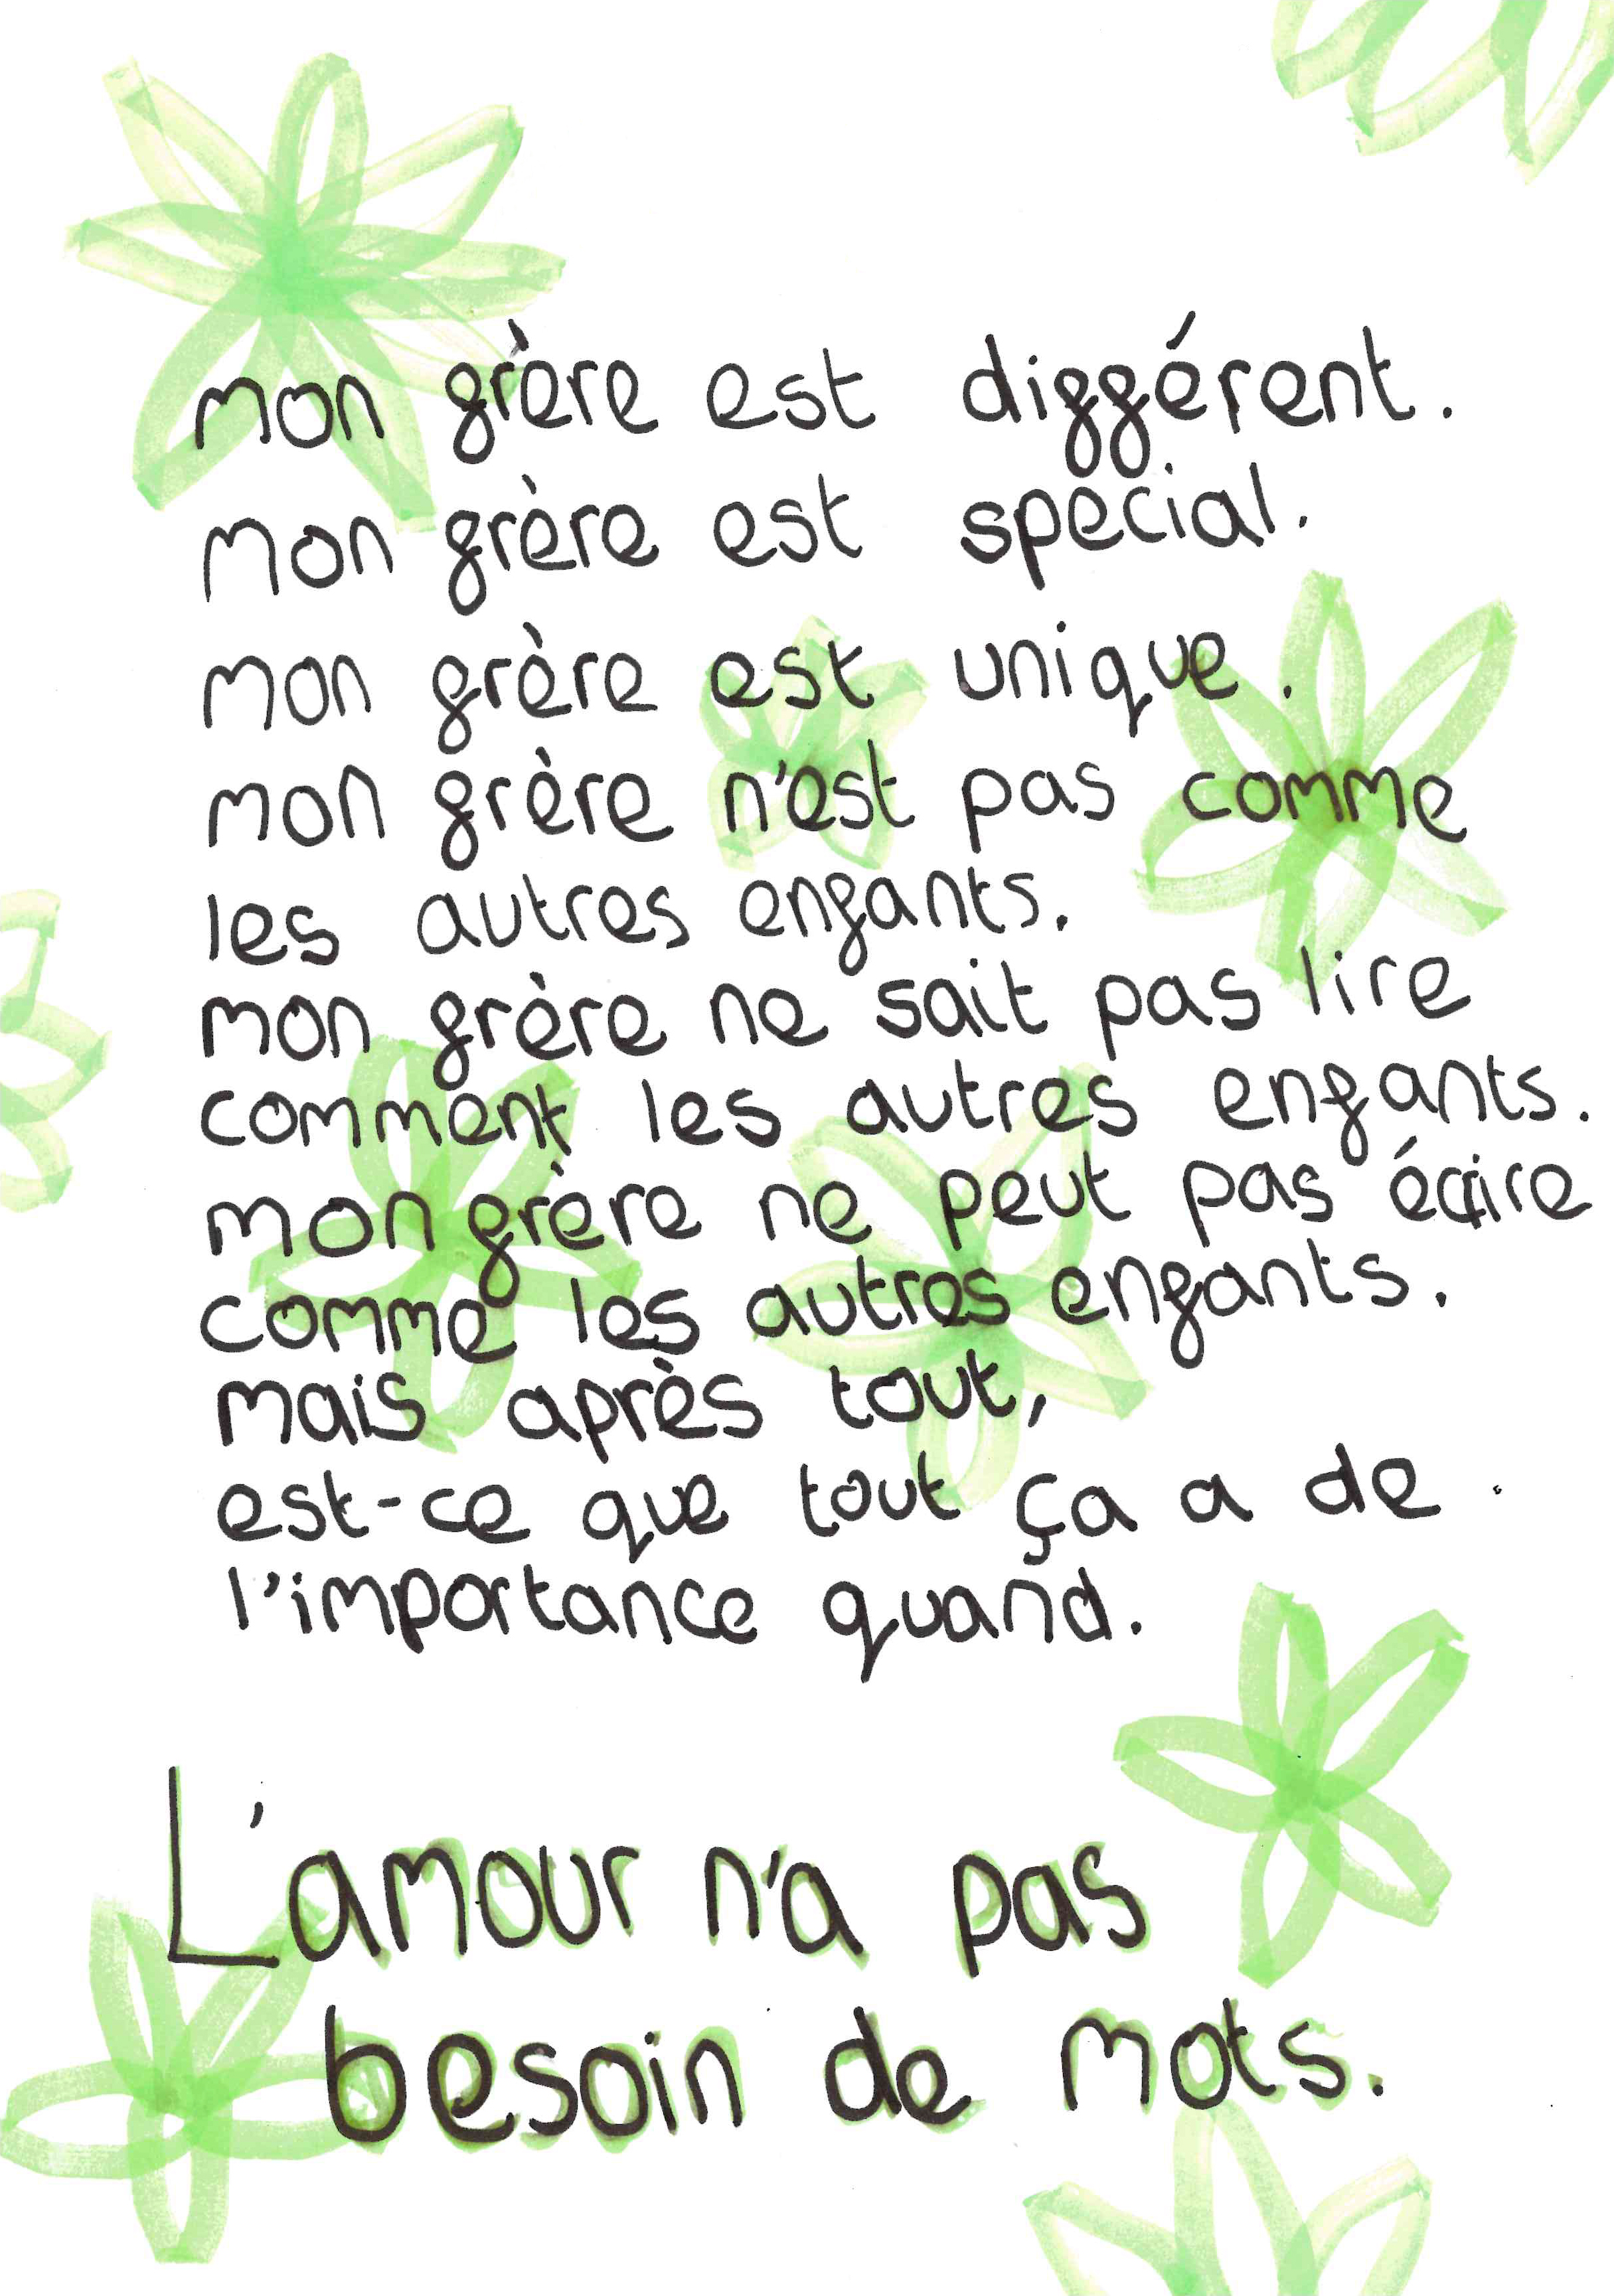 mon frère est différent.
mon frère est special.
mon frère est unique.
mon frère n'est pas comme
les autres enfants.
mon frère ne sait pas lire
comment les autres enfants.
mon frère ne peut pas écrire
comme les autres enfants.
mais après tout,
est-ce que tout ça a de
l'importance quand.
L'amour n'a pas
besoin de mots.